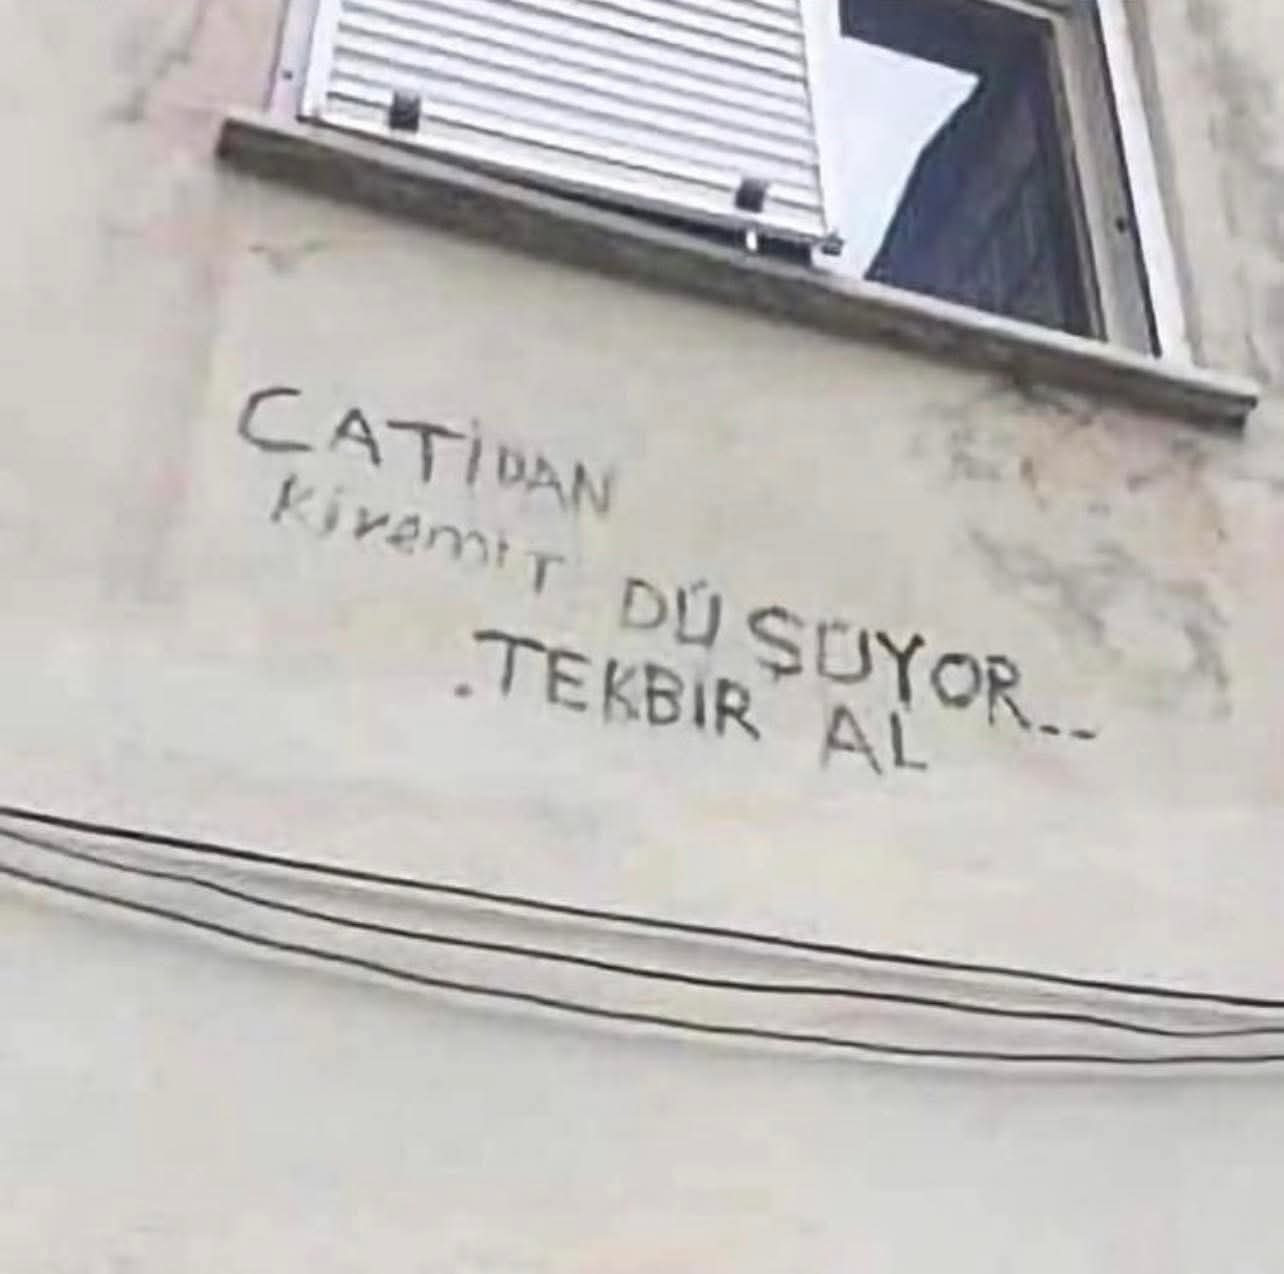 CATİDAN
KİREMİT DÜŞÜYOR...
.TEKBİR AL